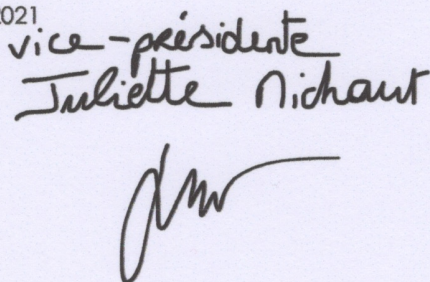 2021
vice-présidente
Juliette Michaut